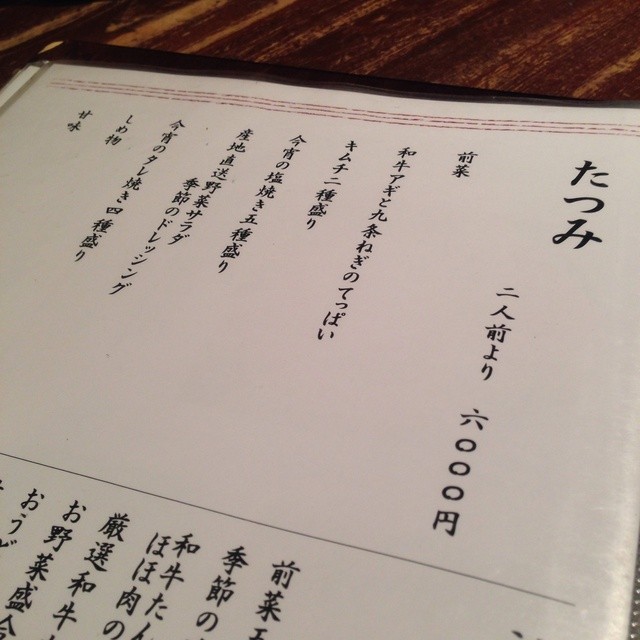 たつみ
二人前より 六〇〇〇円
前菜
和牛アギと九条ねぎのてっぱい
キムチ二種盛り
今宵の塩焼き五種盛り
産地直送野菜サラダ
季節のドレッシング
今宵のタレ焼き四種盛り
しめ物
甘味
前菜
季節の
和牛たん
ほほ肉の
厳選和牛
お野菜盛合
おうど